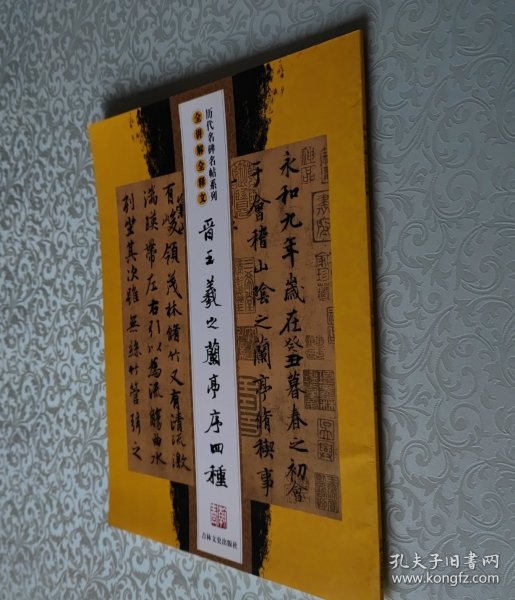 历代名碑名帖系列
全讲解全释文
晋王羲之蘭亭序四種
吉林文史出版社
永和九年歲在癸丑暮春之初會
于會稽山陰之蘭亭脩稧事
有峻領茂林脩竹又有清流激
湍暎帶左右引以為流觴曲水
列坐其次雖無絲竹管弦之
孔夫子旧书网
www.kongfz.com